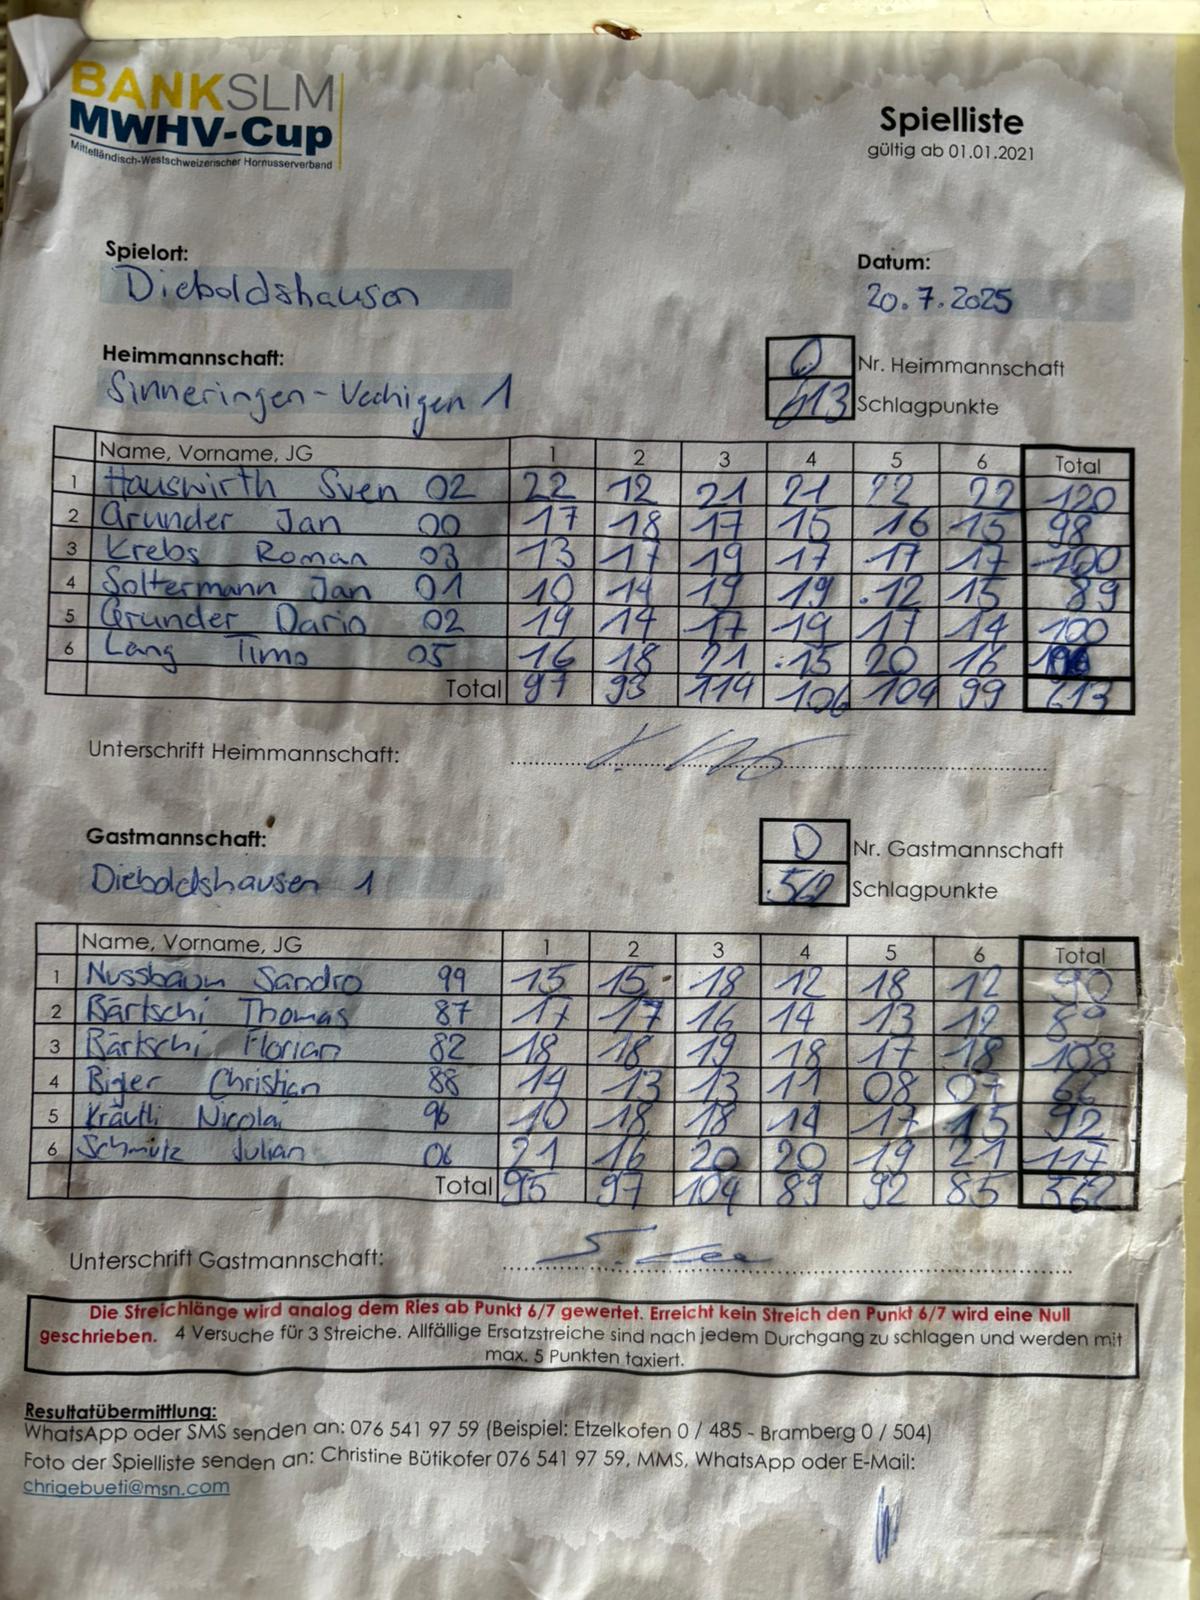 BANKSLM
MWHV-Cup
Mittelländisch-Westschweizerischer Hornusserverband
Spielliste
gültig ab 01.01.2021
Spielort:
Dieboldshausen
Datum:
20.7.2025
Heimmannschaft:
Sinneringen-Vechigen 1
0 Nr. Heimmannschaft
613 Schlagpunkte
Name, Vorname, JG 1 2 3 4 5 6 Total
1 Hauswirth Sven 02 22 12 21 21 22 22 120
2 Grunder Jan 00 17 18 17 15 16 15 98
3 Krebs Roman 03 13 17 19 17 17 17 100
4 Soltermann Jan 01 10 14 19 19 12 15 89
5 Grunder Dario 02 19 14 17 19 17 14 100
6 Lang Timo 05 16 18 21 15 20 16 106
Total 97 93 114 106 104 99 613
Unterschrift Heimmannschaft:
Gastmannschaft:
Dieboldshausen 1
0 Nr. Gastmannschaft
562 Schlagpunkte
Name, Vorname, JG 1 2 3 4 5 6 Total
1 Nussbaum Sandro 99 15 15 18 12 18 12 90
2 Bärtschi Thomas 87 17 17 16 14 13 12 89
3 Bärtschi Florian 82 18 18 19 18 17 18 108
4 Christian 88 14 13 13 11 08 07 66
5 Kräutli Nicola 96 10 18 18 14 17 15 92
6 Schmutz Julian 06 21 16 20 20 19 21 117
Total 95 97 104 89 92 85 562
Unterschrift Gastmannschaft:
Die Streichlänge wird analog dem Ries ab Punkt 6/7 gewertet. Erreicht kein Streich den Punkt 6/7 wird eine Null
geschrieben. 4 Versuche für 3 Streiche. Allfällige Ersatzstreiche sind nach jedem Durchgang zu schlagen und werden mit
max. 5 Punkten taxiert.
Resultatübermittlung:
WhatsApp oder SMS senden an: 076 541 97 59 (Beispiel: Etzelkofen 0 / 485 - Bramberg 0 / 504)
Foto der Spielliste senden an: Christine Bütikofer 076 541 97 59, MMS, WhatsApp oder E-Mail:
chrigebueti@msn.com